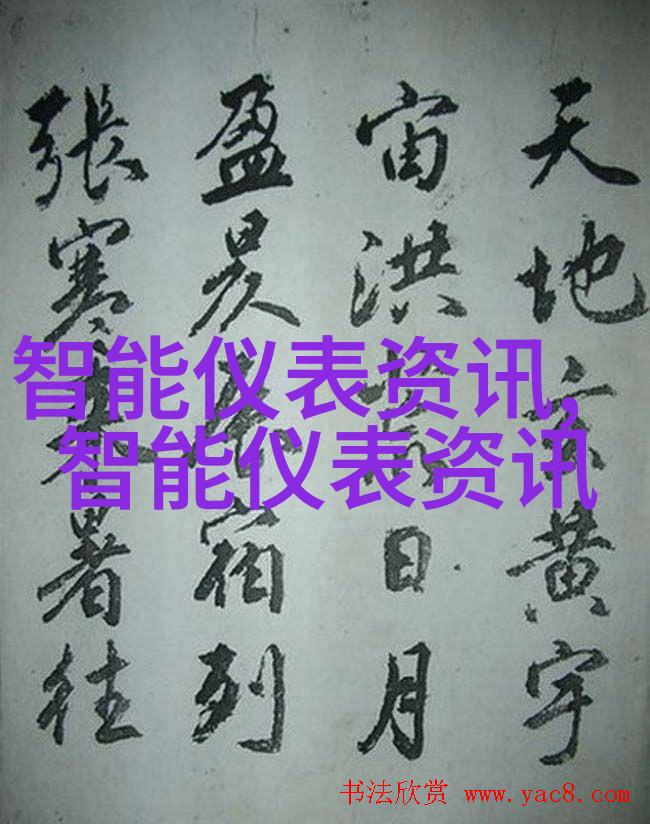 天地玄黄宇
宙洪荒日月
盈昃辰宿列
張寒来暑往
智能仪表资讯,
智能仪表资讯
书法欣赏 www.yac8.com